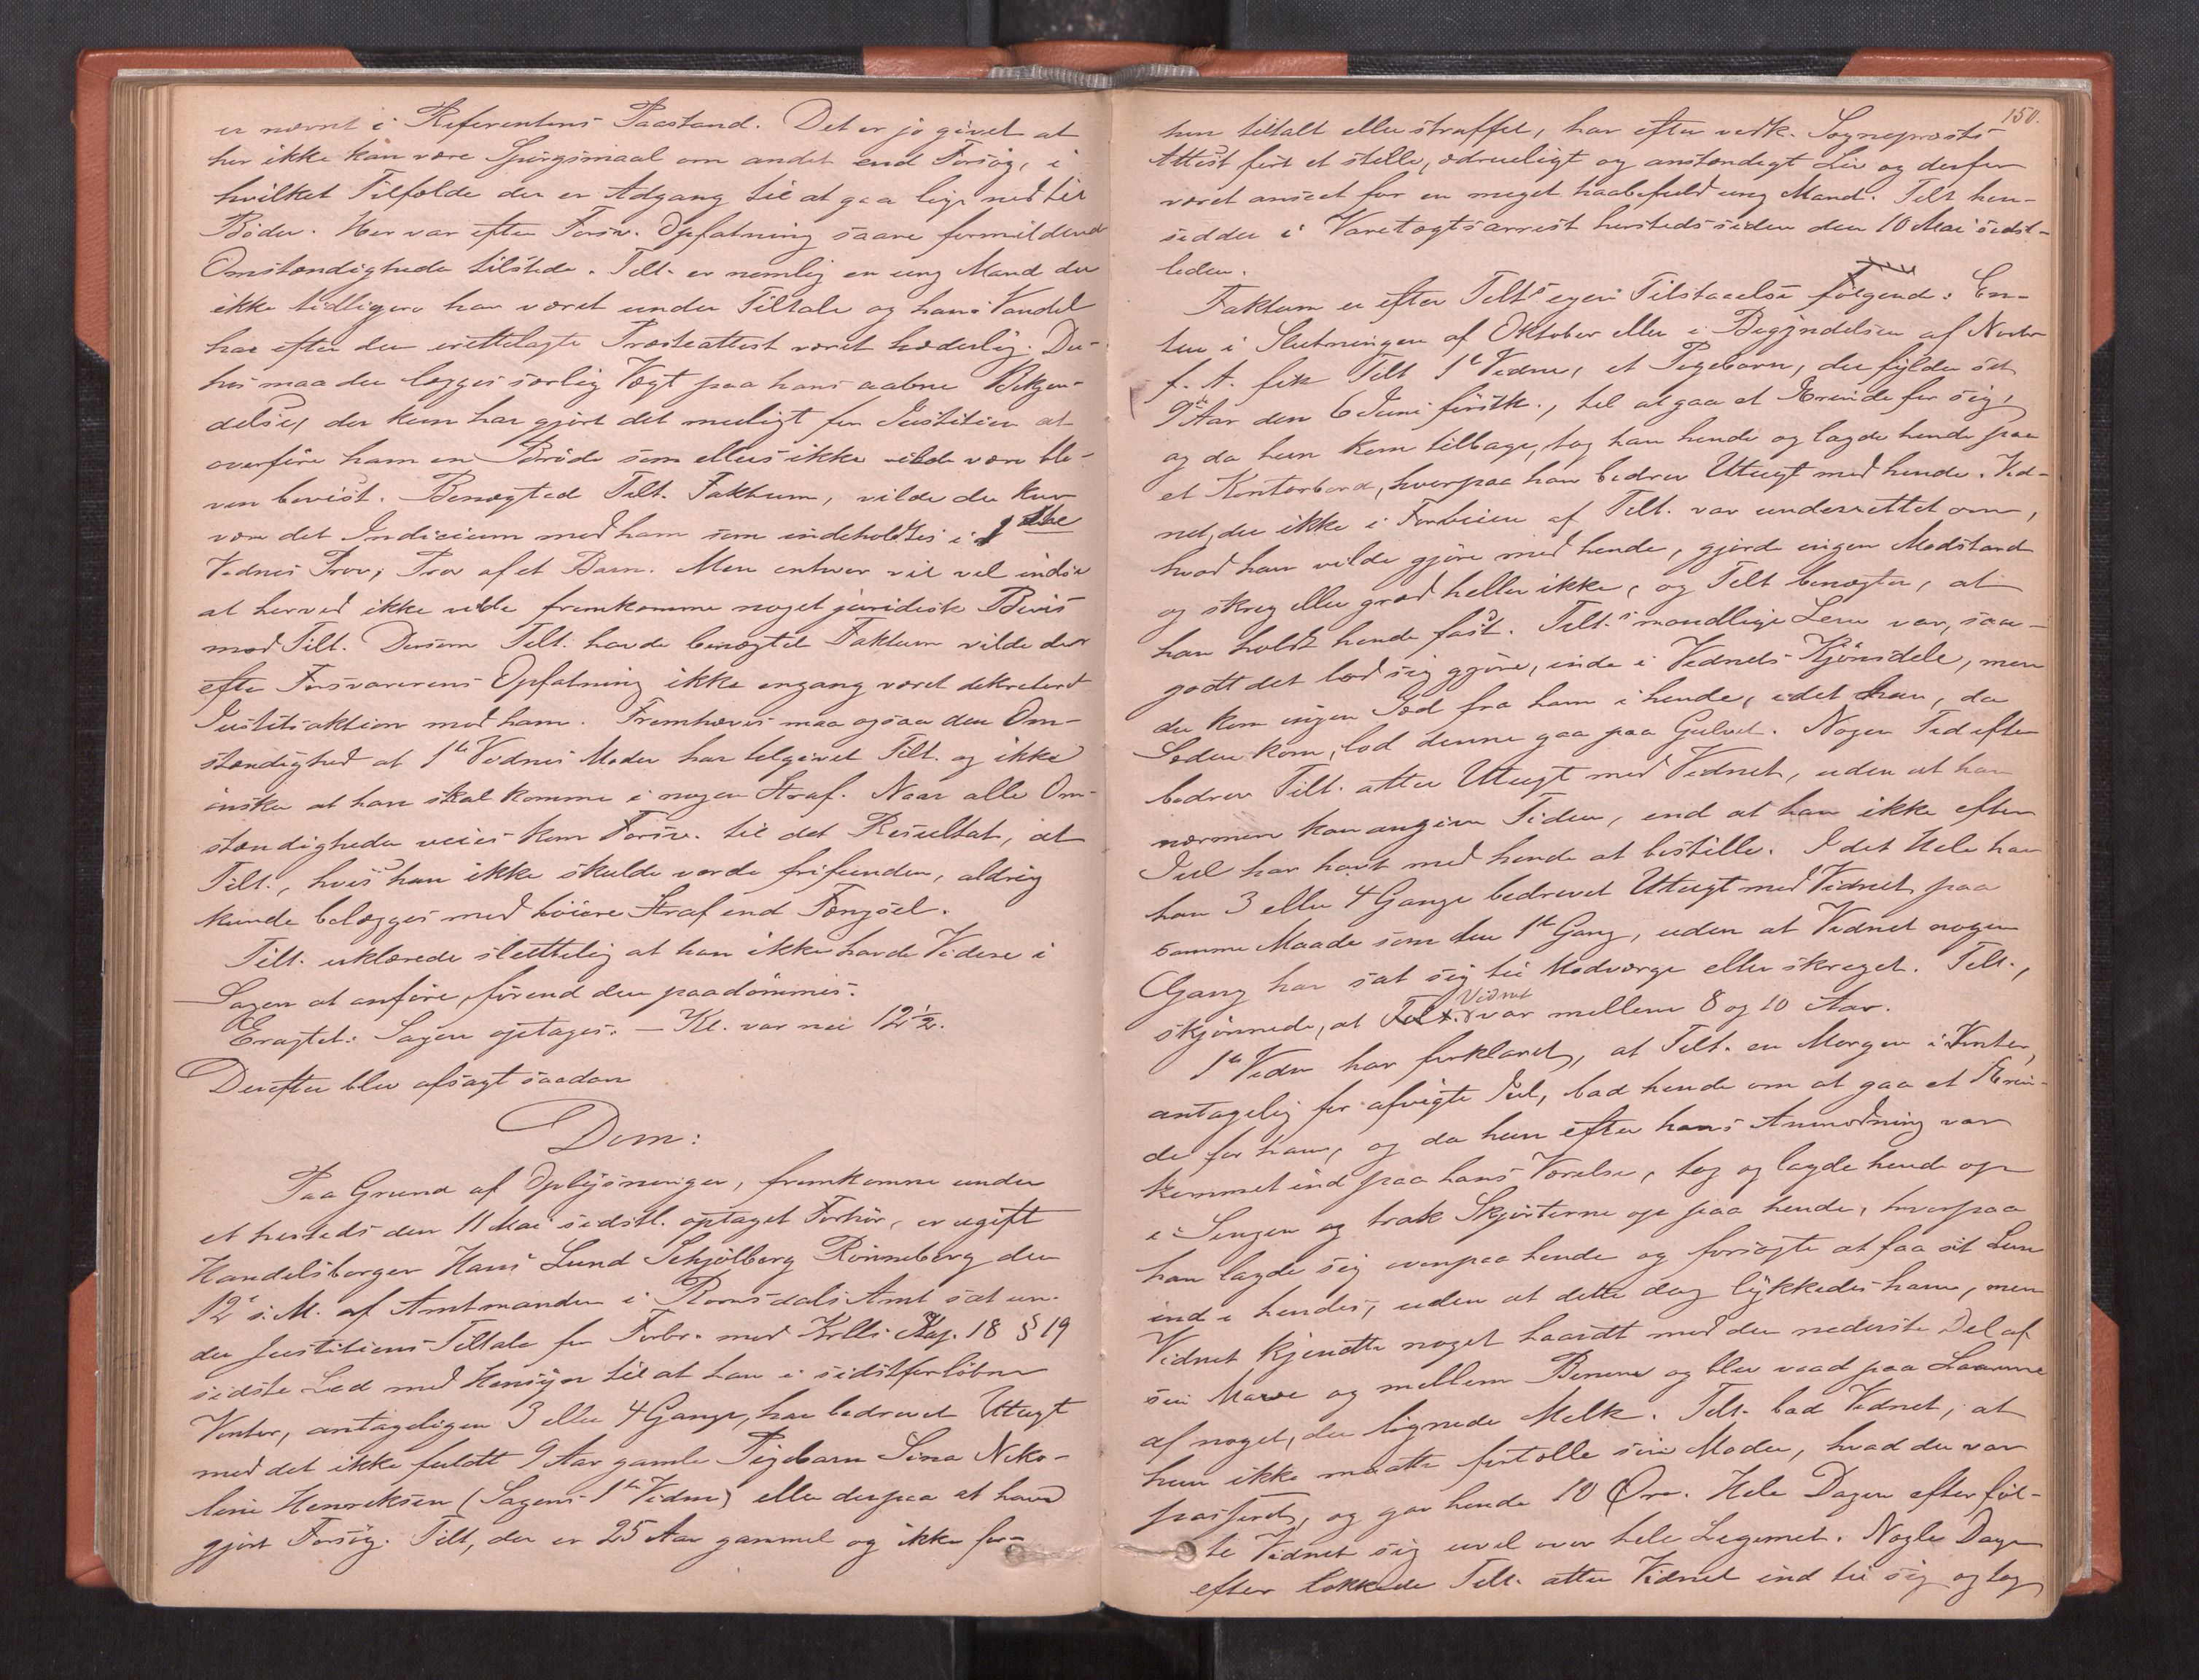 er nævnt i Referentens Paastand. Det er jo givet at
her ikke kan være Spørgsmaal om andet end Forsøg, i
hvilket Tilfælde der er Adgang til at gaa lige ned til
Bøder. Her var efter Forsv. Opfatning saare formildende
Omstændigheder tilstede. Tilt. er nemlig en ung Mand der
ikke tidligere har været under Tiltale og hans Vandel
har efter den irettelagte Præsteattest været hæderlig. Der-
hos maa der lægges særlig Vægt paa hans aabne Bekjen-
delse, der kun har gjort det muligt for Justitien at
overføre ham en Brøde som ellers ikke vilde være ble-
ven bevist. Benægted Tilt. Faktum, vilde der kun
være det Indicium mod ham som indeholdtes i 1ste
Vidnes Prov, Prov af et Barn. Men enhver vil vel indse
at herved ikke vilde fremkomme noget juridisk Bevis
mod Tilt. Dersom Tilt. havde benægtet Faktum vilde der
efter Forsvarerens Opfatning ikke engang været dekreteret
Justitsaktion mod ham. Fremhæves maa ogsaa den Om-
stændighed at 1ste Vidnes Moder har tilgivet Tilt. og ikke
ønsker at han skal komme i nogen Straf. Naar alle Om-
stændigheder veies kom Forsv. til det Resultat, at
Tilt., hvis han ikke skulde vorde frifunden, aldrig
kunde belægges med høiere Straf end Fængsel.
Tilt. erklærede sluttelig at han ikke havde Videre i
Sagen at anføre, førend den paadømmes.
Eragtet: Sagen optages. — Kl. var nu 12½.
Derefter blev afsagt saadan
Dom:
Paa Grund af Oplysninger, fremkomne under
et hersteds den 11 Mai sidstl. optaget Forhør, er ugift
Handelsborger Hans Lund Schjølberg Rønneberg den
12 s. M. af Amtmanden i Romsdals Amt sat un-
der Justitiens Tiltale for Forbr. mod Krll's Kap. 18 § 19
sidste Led med Hensyn til at han i sidstforløbne
Vinter, antageligen 3 eller 4 Gange, har bedrevet Utugt
med det ikke fuldt 9 Aar gamle Pigebarn Sina Niko-
line Henriksen (Sagens 1ste Vidne) eller derpaa at have
gjort Forsøg. Tilt, der er 25 Aar gammel og ikke før-
150.
hen tiltalt eller straffet, har efter vedk. Sognepræsts
Attest ført et stille, ædrueligt og anstændigt Liv og derfor
været anseet for en meget haabefuld ung Mand. Tilt hen-
sidder i Varetægtsarrest hersteds siden den 10 Mai sidst-
leden.
Faktum er efter Tilts egen Tilstaaelse følgende: En-
ten i Slutningen af Oktober eller i Begyndelsen af Novbr
f. A. fik Tilt 1ste Vidne, et Pigebarn, der fylder sit
9de Aar den 6 Juni førstk., til at gaa et Ærinde for sig,
og da hun kom tilbage, tog han hende og lagde hende paa
et Kontorbord, hvorpaa han bedrev Utugt med hende. Vid-
net, der ikke i Forveien af Tilt. var underrettet om,
hvad han vilde gjøre med hende, gjorde ingen Modstand
og skreg eller græd heller ikke, og Tilt benægter, at
han holdt hende fast. Tilt.s mandlige Lem var, saa-
godt det lod sig gjøre, inde i Vidnets Kjønsdele, men
der kom ingen Sæd fra ham i hende, idet han, da
Sæden kom, lod denne gaa paa Gulvet. Nogen Tid efter
bedrev Tilt. atter Utugt med Vidnet, uden at han
nærmere kan angive Tiden, end at han ikke efter
Jul har havt med hende at bestille. I det Hele har
han 3 eller 4 Gange bedrevet Utugt med Vidnet paa
samme Maade som den 1ste Gang, uden at Vidnet nogen
Gang har sat sig til Modværge eller skreget. Tilt.,
skjønnede, at Vidnet var mellem 8 og 10 Aar.
1ste Vidne har forklaret, at Tilt. en Morgen i Vinter,
antagelig før afvigte Jul, bad hende om at gaa et Ærin-
de for ham, og da hun efter hans Anmodning var
kommet ind paa hans Værelse, tog og lagde hende op
i Sengen og trak Skjørterne op paa hende, hvorpaa
han lagde sig ovenpaa hende og forsøgte at faa sit Lem
ind i hendes, uden at dette dog lykkedes ham, men
Vidnet kjendte noget haardt mod den nederste Del af
sin Mave og mellem Benene og blev vaad paa Laarene
af noget, der lignede Melk. Tilt. bad Vidnet, at
hun ikke maatte fortælle sin Moder, hvad der var
passeret, og gav hende 10 Øre. Hele Dagen efter føl-
te Vidnet sig uvel over hele Legemet. Nogle Dage
efter lokkede Tilt. atter Vidnet ind til sig og tog